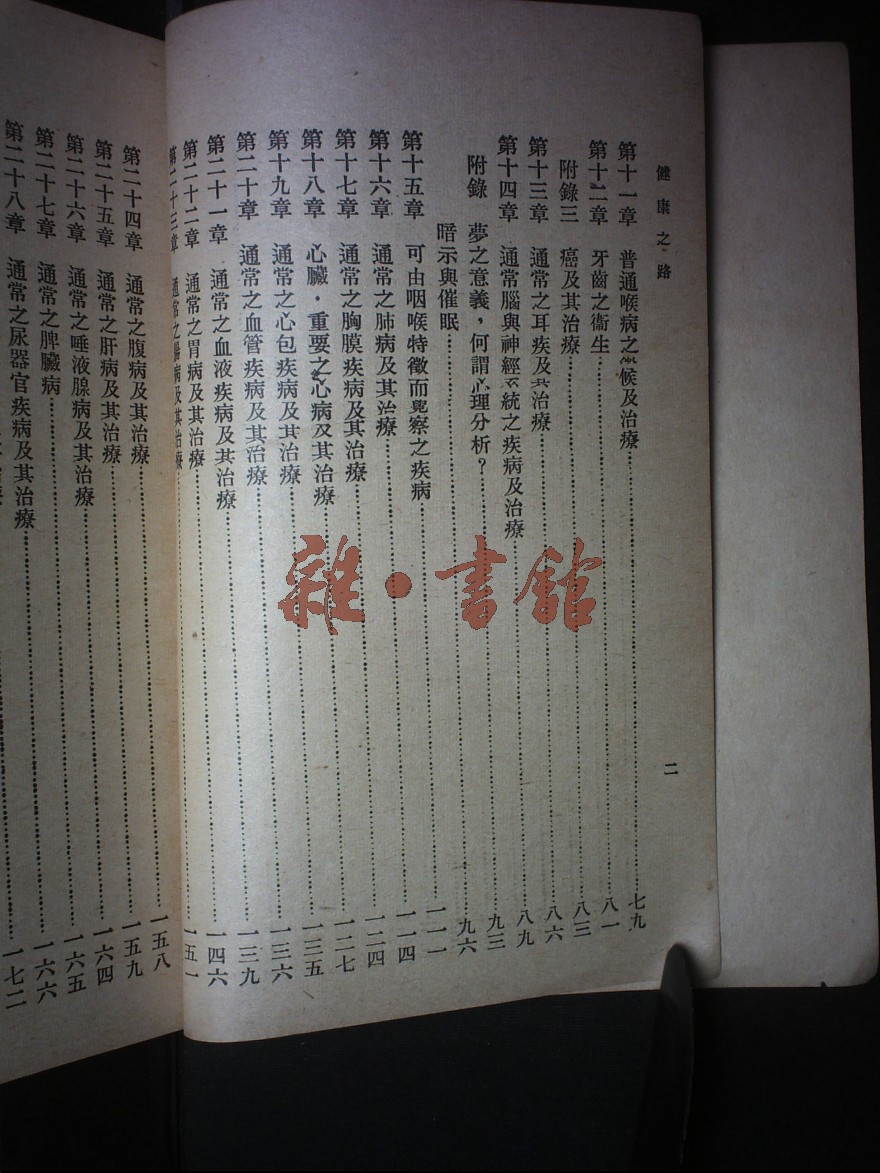 健康之路
第十一章 普通喉病之症候及治療……七九
第十二章 牙齒之衞生……八一
附錄三 癌及其治療……八三
第十三章 通常之耳疾及其治療……八六
第十四章 通常腦與神經系統之疾病及治療……八九
附錄 夢之意義，何謂心理分析？……九三
暗示與催眠……九六
第十五章 可由咽喉特徵而覺察之疾病……一一一
第十六章 通常之肺病及其治療……一一四
第十七章 通常之胸膜疾病及其治療……一二四
第十八章 心臟・重要之心病及其治療……一二七
第十九章 通常之心包疾病及其治療……一三五
第二十章 通常之血管疾病及其治療……一三六
第二十一章 通常之血液疾病及其治療……一三九
第二十二章 通常之胃病及其治療……一四六
第二十三章 通常之腸病及其治療……一五一
二
第二十四章 通常之腹病及其治療……一五八
第二十五章 通常之肝病及其治療……一五九
第二十六章 通常之唾液腺病及其治療……一六四
第二十七章 通常之脾臟病……一六五
第二十八章 通常之尿器官疾病及其治療……一六六
一七二
雜・書館